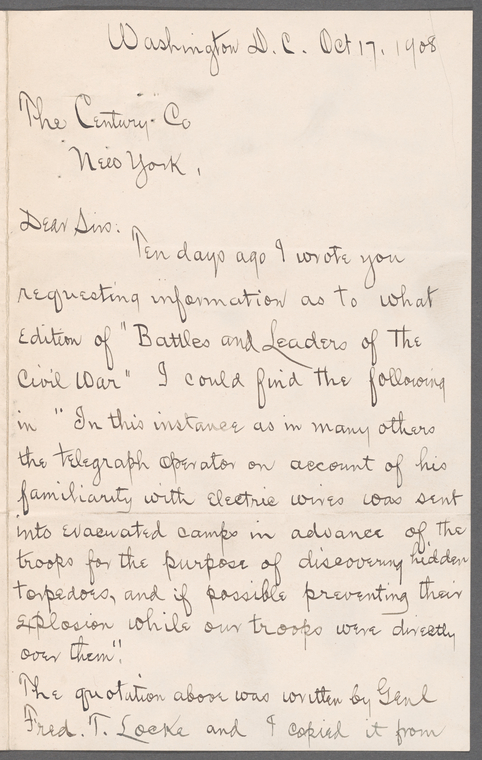 Washington D.C. Oct 17, 1908
The Century Co
New York,
Dear Sirs:
Ten days ago I wrote you
requesting information as to what
Edition of "Battles and Leaders of the
Civil War" I could find the following
in " In this instance as in many others
the telegraph operator on account of his
familiarity with electric wires was sent
into evacuated camps in advance of the
troops for the purpose of discovering hidden
torpedoes, and if possible preventing their
explosion while our troops were directly
over them".
The quotation above was written by Genl
Fred. T. Locke and I copied it from